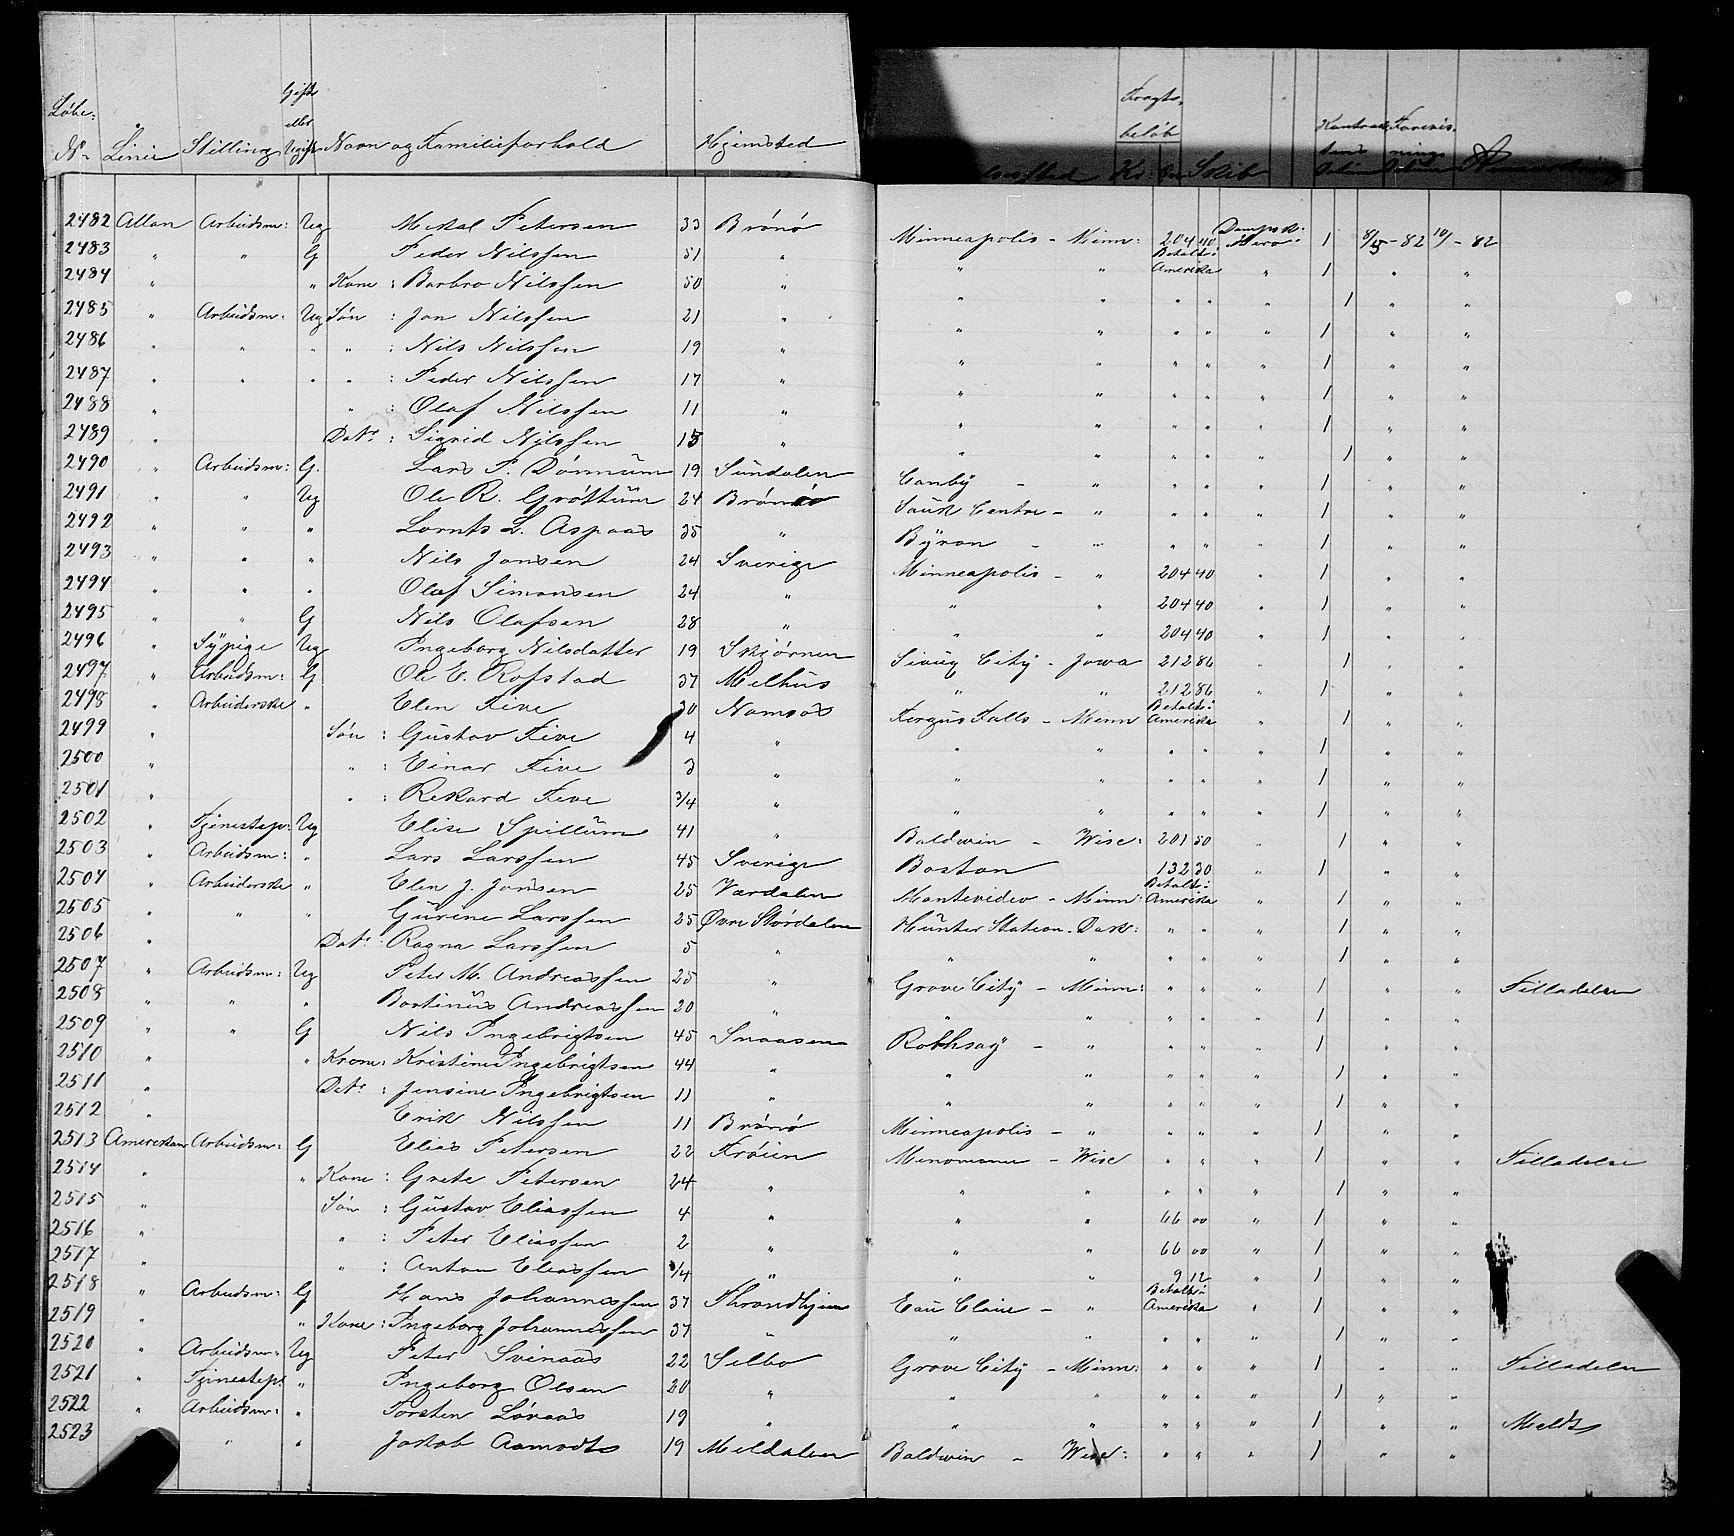 Löbe: Gift Fragts-
eller beløb Kontrak Forevis-
No Linie Stilling Ugift Navn og Familieforhold Hjemsted Kr: Øre Skib
2482 Allan Arbeidsm: Ug Petersen 33 Brønø Minneapolis - Minn: 204 40 Dampsk: Hero 1 8/5-82 10/-82
2483 " " G Peder Nilssen 51 " " " Betalt i Amerika " 1 " "
2484 " " Kone : Barbro Nilssen 50 " " " " " " 1 " "
2485 " Arbeidsm: Ug Søn : Jon Nilssen 21 " " " " " " 1 " "
2486 " " " " : Nils Nilssen 19 " " " " " " 1 " "
2487 " " " " : Peder Nilssen 17 " " " " " " 1 " "
2488 " " : Olaf Nilssen 11 " " " " " " 1 " "
2489 " Datr : Sigrid Nilssen 15 " " " " " " 1 " "
2490 " Arbeidsm: G. Lars P. Dønnum 19 Sundalen Canby - " " " " 1 " "
2491 " " Ug Ole R. Grøttum 24 Brønø Sauk Centre - " " " " 1 " "
2492 " " " Lornts L. Aspaas 35 " Byron - " " " " 1 " "
2493 " " " Nils Jonsen 24 Sverige Minneapolis - " 204 40 " 1 " "
2494 " " " Olaf Simonsen 24 " " " 204 40 " 1 " "
2495 " " G Nils Olafsen 28 " " " 204 40 " 1 " "
2496 " Sypige Ug Ingeborg Nilsdatter 19 Skjørnen Sioux City - Jowa 212 86 " 1 " "
2497 " Arbeidsm: G Ole E. Rofstad 37 Melhus " " 212 86 " 1 " "
2498 " Arbeiderske " Elen Five 30 Namsos Fergus Falls - Minn Betalt i Amerika " 1 " "
2499 " Søn : Gustav Five 4 " " " " " " 1 " "
2500 " " : Einar Five 3 " " " " " " 1 " "
2501 " " : Rikard Five 3/4 " " " " " " 1 " "
2502 " Tjenestep: Ug Elise Spillum 41 " Baldwin - Wisc: 201 30 " 1 " "
2503 " Arbeidsm: " Lars Larssen 45 Sverige Boston 132 30 " 1 " "
2504 " Arbeiderske " Elen J. Jonsen 25 Værdalen Montevideo - Minn: Betalt i Amerika " 1 " "
2505 " " " Gurine Larssen 25 Øvre Størdalen Hunter Station - Dak: " " " 1 " "
2506 " Datr : Ragna Larssen 5 " " " " " 1 " "
2507 " Arbeidsm: Ug Peter M. Andreassen 25 " Grove City - Minn: " " " 1 " " Filladelen
2508 " " " Bortinus Andreassen 20 " " " " " " 1 " "
2509 " " G Nils Ingebrigtsen 45 Snaasen Rothsay - " " " " 1 " "
2510 " " Krone: Kristine Ingebrigtsen 44 " " " " " " 1 " "
2511 " Datr : Jensine Ingebrigtsen 11 " " " " " " 1 " "
2512 " Erik Nilssen 11 Brønø Minneapolis - " " " " 1 " "
2513 Amerikan Arbeidsm: G Elias Petersen 22 Frøien Menomene - Wisc " " " 1 " " Filladelen
2514 " " Kone : Grete Petersen 24 " " " " " " 1 " "
2515 " Søn : Gustav Eliassen 4 " " " 66 00 " 1 " "
2516 " " : Peter Eliassen 2 " " " 66 00 " 1 " "
2517 " " : Anton Eliassen 3/4 " " " 9 12 " 1 " "
2518 " Arbeidsm: G Hans Johannessen 37 Throndhjem Eau Claire - " Betalt i Amerika " 1 " "
2519 " " Kone : Ingeborg Johannessen 37 " " " " " " 1 " "
2520 " Arbeidsm: Ug Peter Svinaas 22 Selbo Grove City - Minn: " " " 1 " " Filladelen
2521 " Tjenestep: " Ingeborg Olsen 20 " " " " " " 1 " "
2522 " Arbeidsm: " Torsten Løvaas 19 " " " " " " 1 " "
2523 " " " Jakob Aamodts 19 Meldalen Baldwin - Wisc: " " " 1 " "